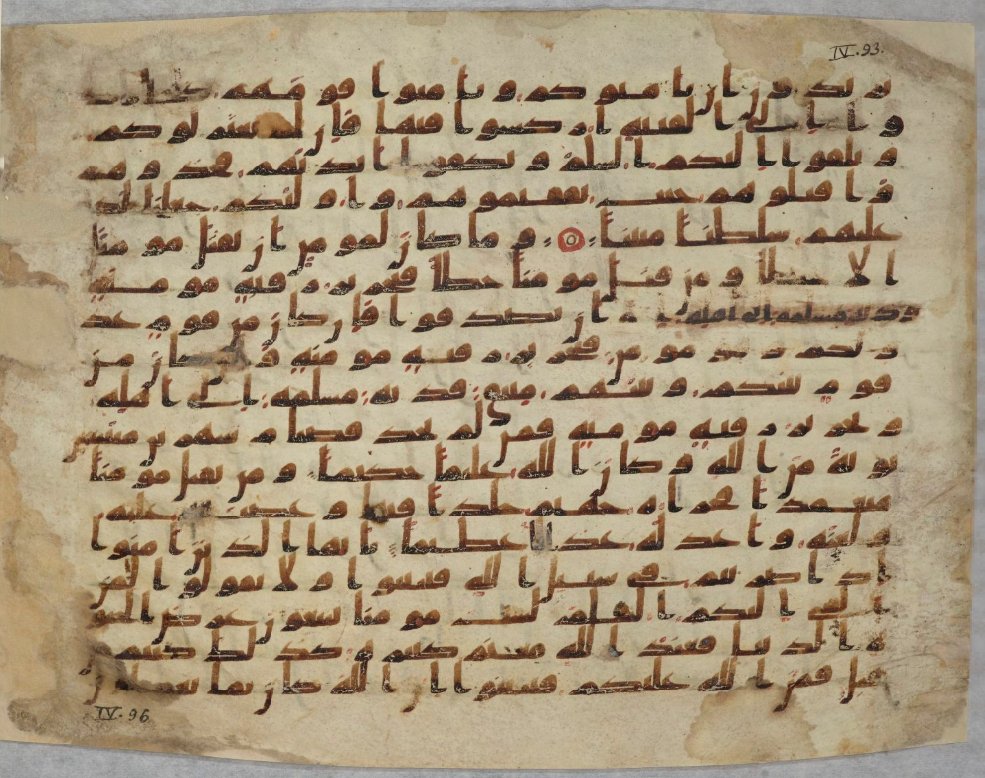 IV.93.
يريدون ان يامنوكم ويامنوا قومهم كلما رد
وا الى الفتنة اركسوا فيها فان لم يعتزلوكم
ويلقوا اليكم السلم ويكفوا ايديهم فخذوهم
واقتلوهم حيث ثقفتموهم واولئكم جعلنا لكم
عليهم سلطنا مبينا وما كان لمومن ان يقتل مومنا
الا خطا ومن قتل مومنا خطا فتحرير رقبة مومنة
ودية مسلمة الى اهله ان يصدقوا فان كان من قوم عد
و لكم وهو مومن فتحرير رقبة مومنة وان كان من
قوم بينكم وبينهم ميثق فدية مسلمة الى اهله
وتحرير رقبة مومنة فمن لم يجد فصيام شهرين متتبعين
توبة من الله وكان الله عليما حكيما ومن يقتل مومنا
متعمدا فجزاوه جهنم خلدا فيها وغضب الله عليه
ولعنه واعد له عذابا عظيما يايها الذين امنوا
اذا ضربتم في سبيل الله فتبينوا ولا تقولوا لمن
القى اليكم السلم لست مومنا تبتغون عرض الحيو
ة الدنيا فعند الله مغنم كثيرة كذلك كنتم من
قبل فمن الله عليكم فتبينوا ان الله كان بما تعملون
IV.96